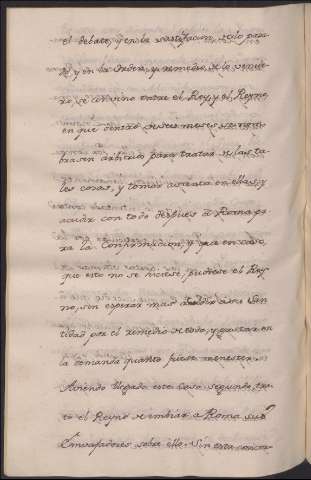 el debate, y en la satisfacion, de lo pasa-
do, y en la Orden, y remedio, de lo venide-
ro, se convino entre el Rey, y el Reyno
en que dentro de seis meses se nom-
brasen arbitros para tratar de las ta-
les cosas, y tomar asiento en ellas, y
acudir con todo despues a Roma pa-
ra la Confirmacion, y que en caso,
que esto no se hiciese, pudiese el Rey
no, sin esperar mas acudir a su San
tidad por el remedio de todo, y gastar en
la demanda quanto fuese menester.
Aviendo llegado este caso segundo, tra-
to el Reyno de embiar a Roma sus
Embaxadores sobre ello. Sin esta concor-